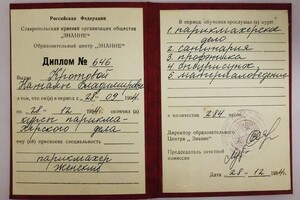 Российская Федерация
Ставропольская краевая организация общества
"ЗНАНИЕ"
Образовательный центр „ЗНАНИЕ"
Диплом № 646
Выдан Кротовой
Наталье Владимировне
в том, что он(а) в период с 28-09 1994г.
по 28-12 1994г. окончил(а)
курсы парикма-
херского дела
ему (ей) присвоена специальность
парикмахер
женский
В период обучения прослушал(а) курс
1. парикмахерское
дело
2. санитария
3.
4. спецрисунок
5. материаловедение
в количестве 284 часов.
Директор образовательного
Центра „Знание"
Председатель зачетной
комиссии
Дата 28-12 1994г.